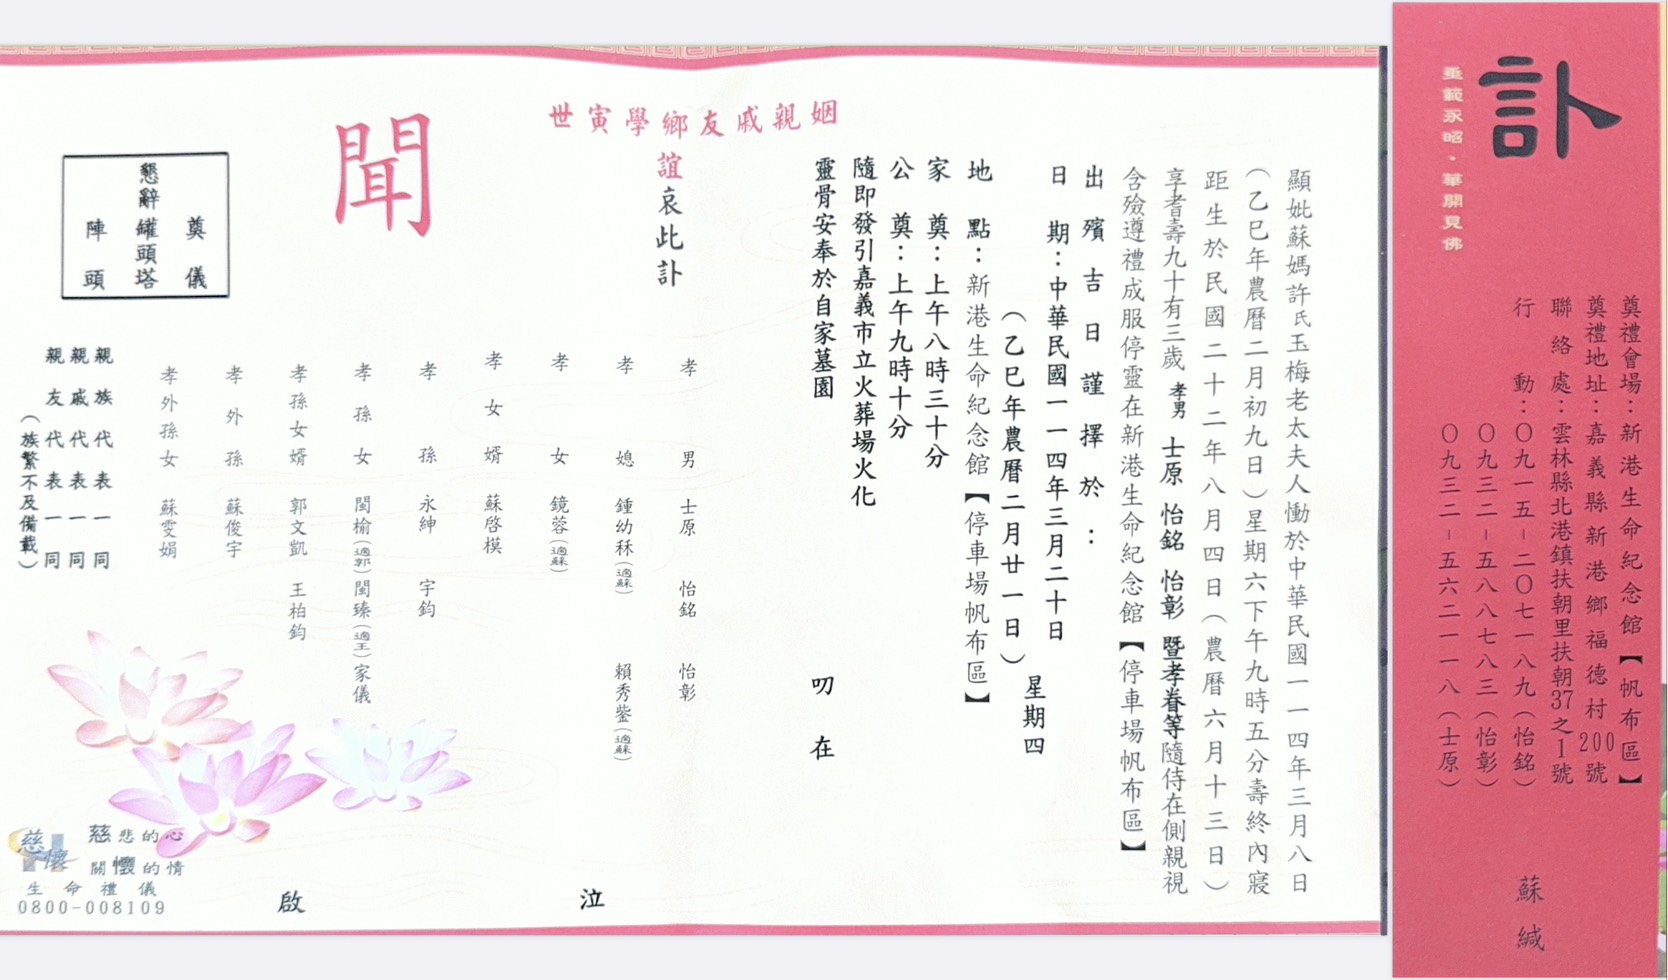 訃
垂範永昭．華開見佛
奠禮會場：新港生命紀念館【帆布區】
奠禮地址：嘉義縣新港鄉福德村200號
聯絡處：雲林縣北港鎮扶朝里扶朝37之1號
行動：〇九一五－二〇七一八九（怡銘）
〇九三二－五八八七八三（怡彰）
〇九三二－五六二一一八（士原）
蘇緘
顯妣蘇媽許氏玉梅老太夫人慟於中華民國一一四年三月八日
（乙巳年農曆二月初九日）星期六下午九時五分壽終內寢
距生於民國二十二年八月四日（農曆六月十三日）
享耆壽九十有三歲 孝男 士原 怡銘 怡彰 暨孝眷等隨侍在側親視
含殮遵禮成服停靈在新港生命紀念館【停車場帆布區】
出殯吉日謹擇於：
日期：中華民國一一四年三月二十日
（乙巳年農曆二月廿一日）
星期四
地點：新港生命紀念館【停車場帆布區】
家奠：上午八時三十分
公奠：上午九時十分
隨即發引嘉義市立火葬場火化
靈骨安奉於自家墓園
叨在
姻親戚友鄉學寅世
誼哀此訃
聞
孝男 士原 怡銘 怡彰
孝媳 鍾幼秝（適蘇） 賴秀鈭（適蘇）
孝女 鏡蓉（適蘇）
孝女婿 蘇啓模
孝孫 永紳 宇鈞
孝孫女 閔榆（適郭） 閔臻（適王） 家儀
孝孫女婿 郭文凱 王柏鈞
孝外孫 蘇俊宇
孝外孫女 蘇雯娟
泣
啟
奠儀
懇辭 罐頭塔
陣頭
親族代表一同
親戚代表一同
親友代表一同
（族繁不及備載）
慈懷
慈悲的心
關懷的情
生命禮儀
0800-008109